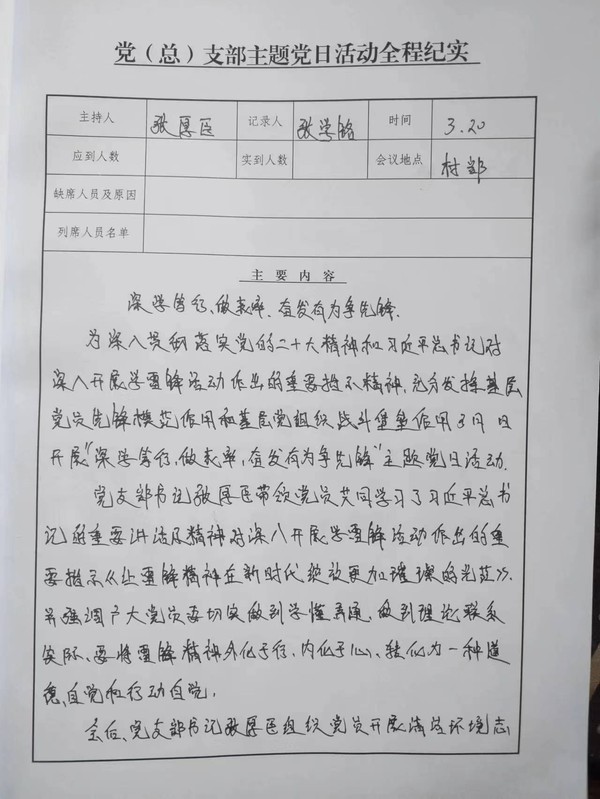 党（总）支部主题党日活动全程纪实
主持人 张厚臣 记录人 张学锋 时间 3.20
应到人数 实到人数 会议地点 村部
缺席人员及原因
列席人员名单
主要内容
深学笃行、做表率、奋发有为争先锋.
为深入贯彻落实党的二十大精神和习近平总书记对
深入开展学雷锋活动作出的重要指示精神,充分发挥基层
党员先锋模范作用和基层党组织战斗堡垒作用3月 日
开展"深学笃行,做表率,奋发有为争先锋"主题党日活动.
党支部书记张厚臣带领党员共同学习了习近平总书
记的重要讲话及精神对深入开展学雷锋活动作出的重
要指示《让雷锋精神在新时代绽放更加璀璨的光芒》.
并强调广大党员要切实做到学懂弄通,做到理论联系
实际、要将雷锋精神外化于行、内化于心、转化为一种道
德自觉和行动自觉.
会后、党支部书记张厚臣组织党员开展清洁环境志